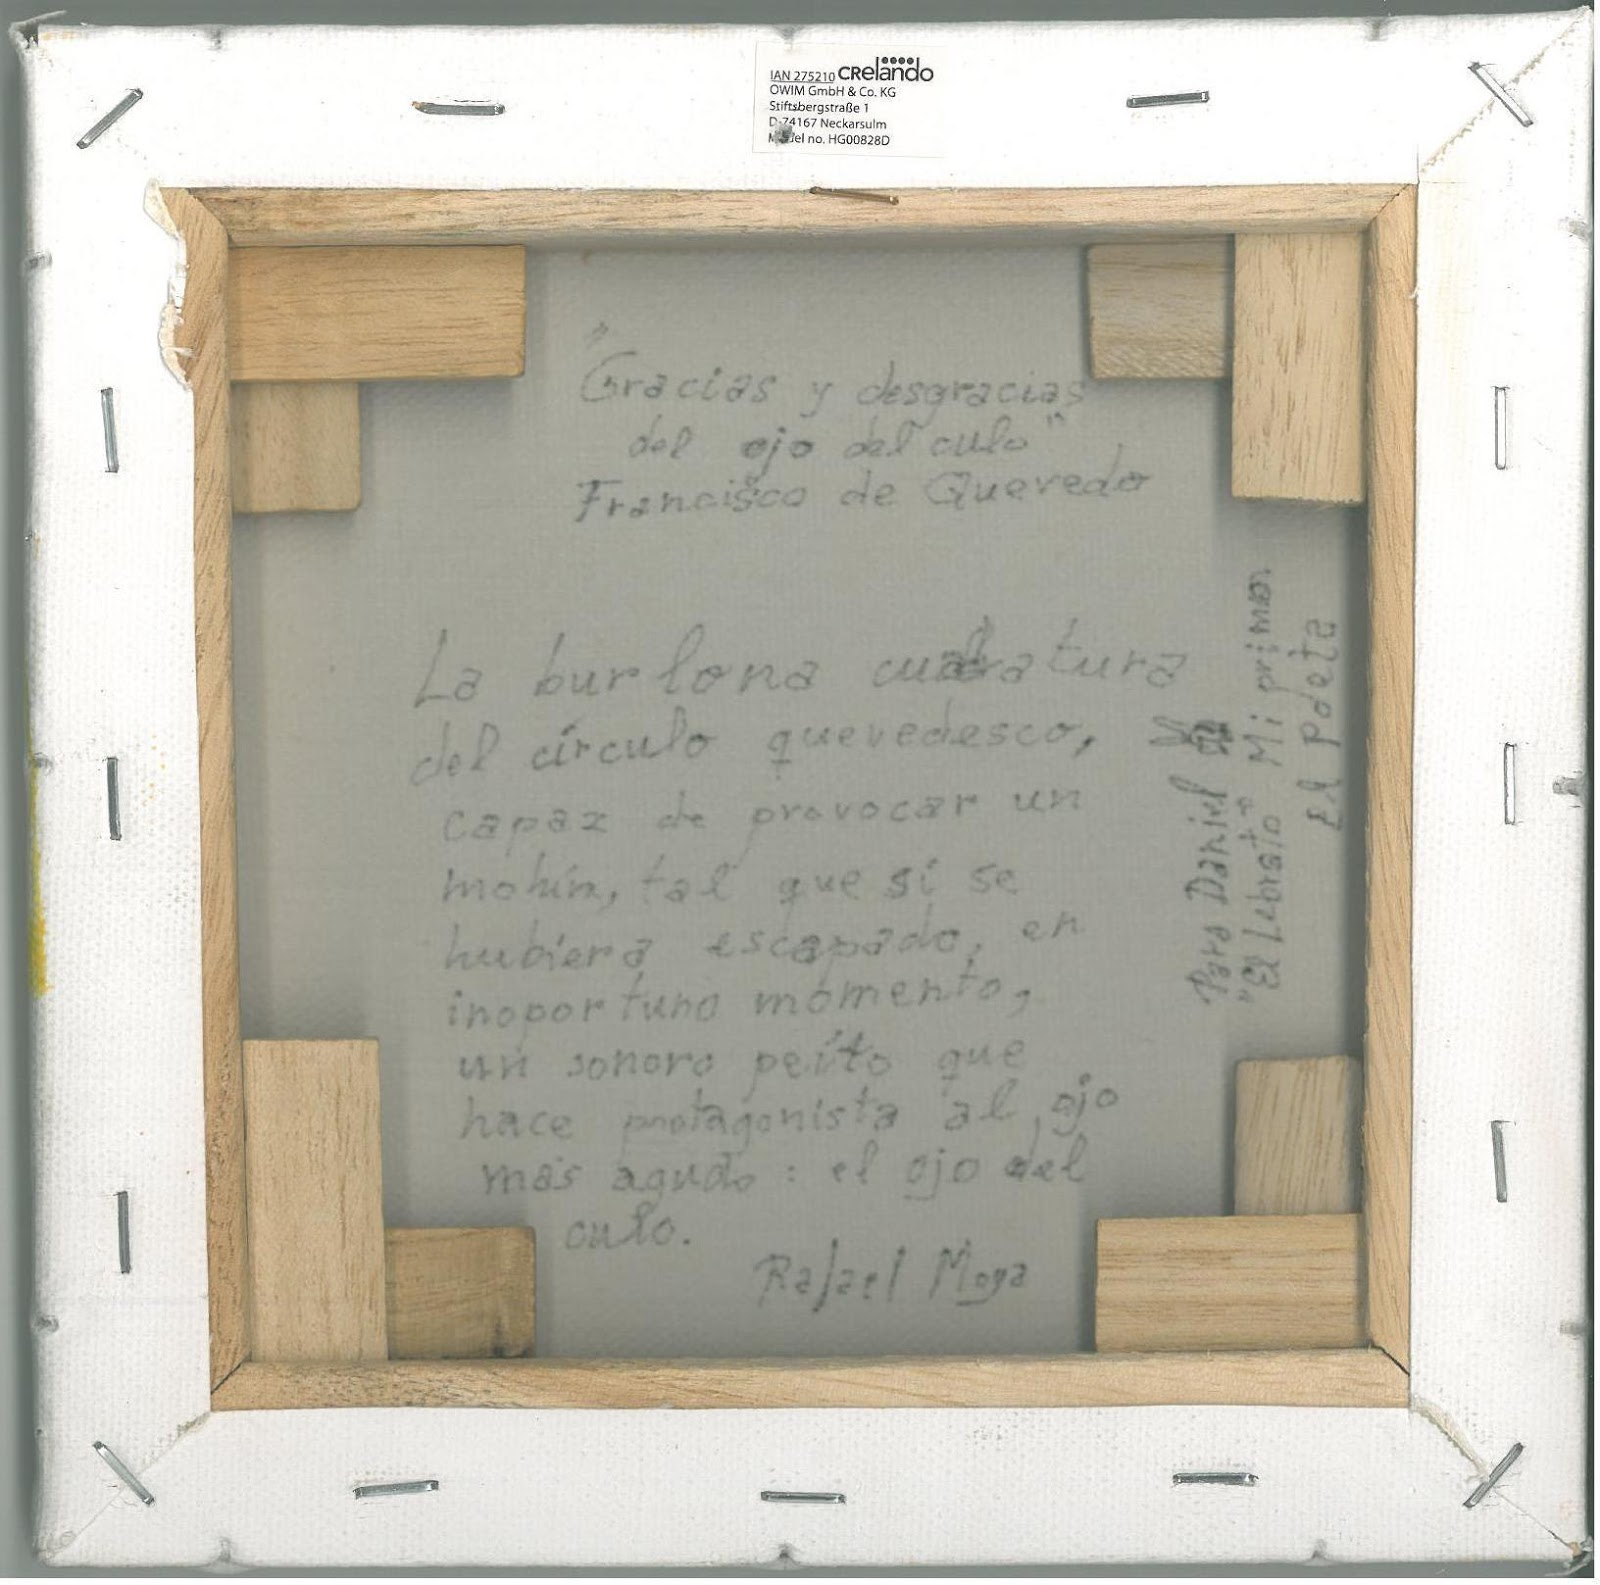 IAN 275210 CRelando
OWIM GmbH & Co. KG
Stiftsbergstraße 1
D-74167 Neckarsulm
Model no. HG00828D
"Gracias y desgracias
del ojo del culo"
Francisco de Quevedo
La burlona cuadratura
del círculo quevedesco,
capaz de provocar un
mohín, tal que si se
hubiera escapado, en
inoportuno momento,
un sonoro peíto que
hace protagonista al ojo
más agudo: el ojo del
culo.
Rafael Moya
Para Daniel
"El Lebrato" Mi primer
El Poeta